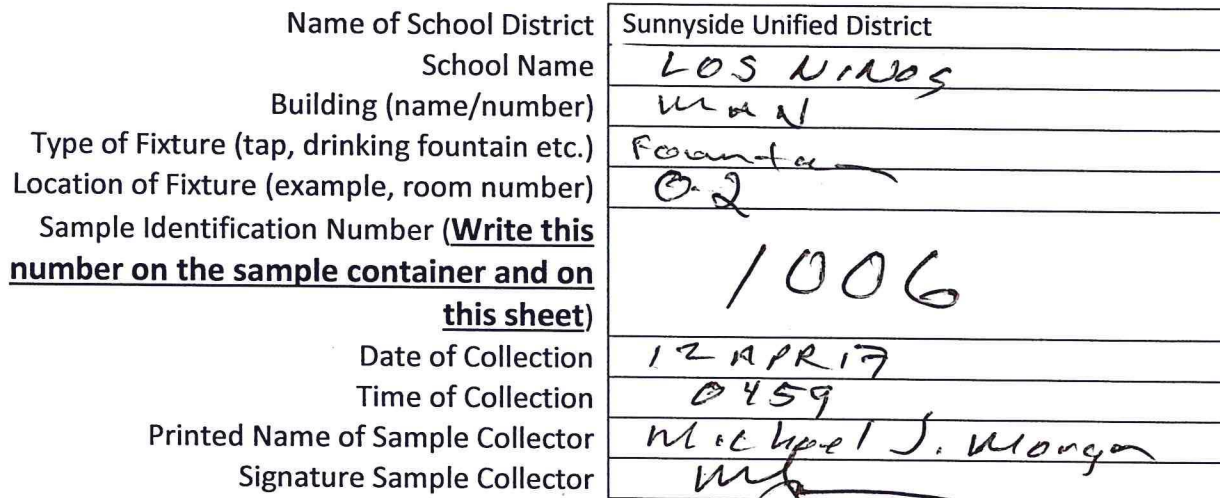 Name of School District Sunnyside Unified District
School Name LOS NINOS
Building (name/number) MAN
Type of Fixture (tap, drinking fountain etc.) Founta
Location of Fixture (example, room number) O-2
Sample Identification Number (Write this
number on the sample container and on
this sheet)
1006
Date of Collection 12 APR 17
Time of Collection 0459
Printed Name of Sample Collector Michael J. Morgan
Signature Sample Collector